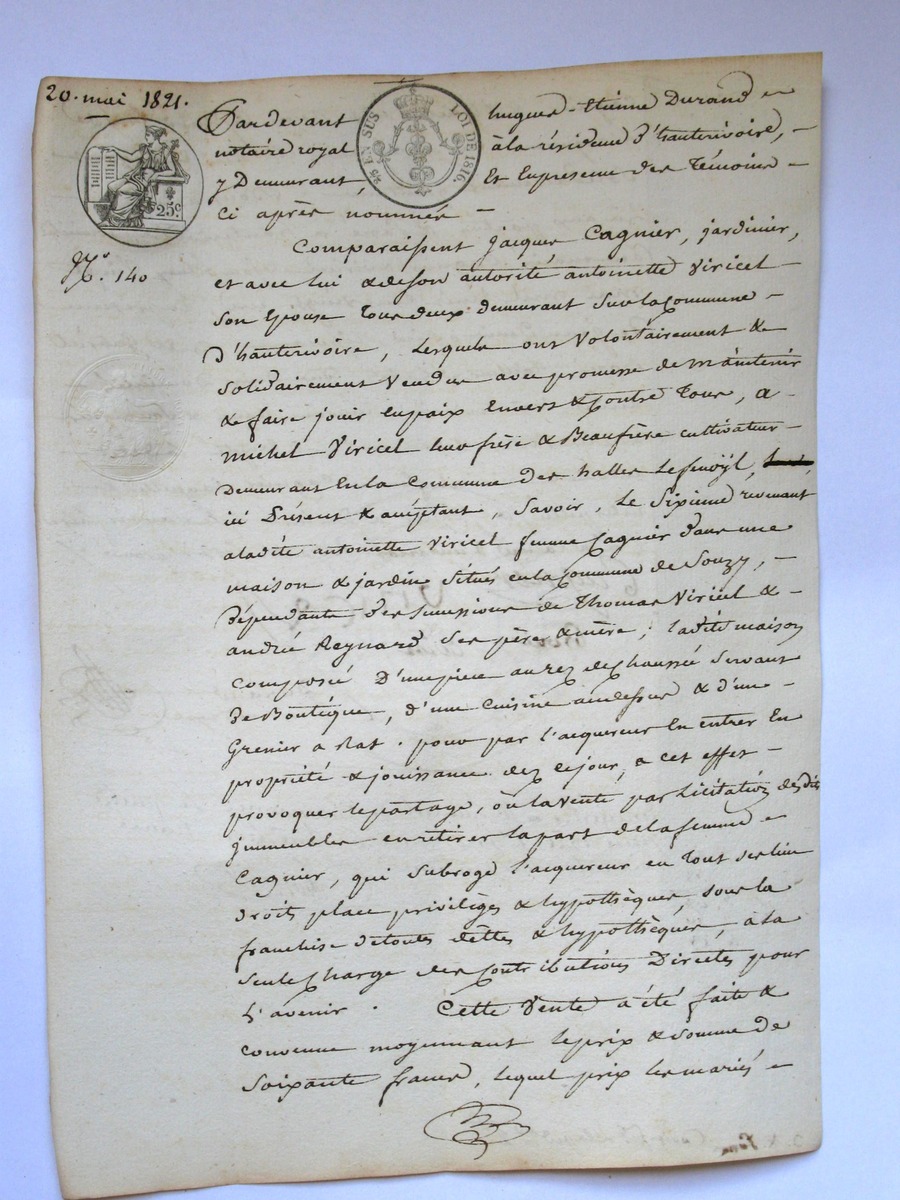 20. mai 1821.
Pardevant hugues-Etienne Durand
notaire royal à la résidence d'hauterivoire,
y Demeurant, Et En presence des Témoins
Ci après nommés
25 EN SUS LOI DE 1816.
25c
N°. 140
Comparaissent jacques Cagnier, jardinier,
et avec lui & de son autorité antoinette Viricel
son Epouse Tous deux demeurant sur la Commune
D'hauterivoire, Lesquels ont Volontairement &
Solidairement Vendus avec promesse de maintenir
& faire jouir En paix Envers & Contre Tous, a
michel Viricel leur frère & Beaufrère cultivateur
Demeurant En la Commune des halles Lefenoÿl,
ici Présent & acceptant, Savoir, Le Sixieme revenant
a ladite antoinette Viricel femme Cagnier dans une
maison & jardin Situés en la Commune de Souzy,
Dépendants des successions de Thomas Viricel &
andrée Reynard ses pères & mère; ladite maison
composée D'une piece au rez de chaussée Servant
De Boutique, d'une Cuisine audessus & d'un
Grenier a Rat. pour par l'acquereur En entrer En
propriété & jouissance dez cejour, a cet effet
provoquer le partage, ou la vente par Licitation desdits
jmmeubles en retirer la part de la femme
Cagnier, qui Subroge l'acquereur en Tout ses lieu
droits place privilèges & hypothèques, sous la
franchise de toutes dettes & hypothèques, à la
Seule Charge des Contributions Directes pour
L'avenir. Cette Vente a été faite &
convenue moyennant le prix & Somme de
Soixante francs, lequel prix les mariés